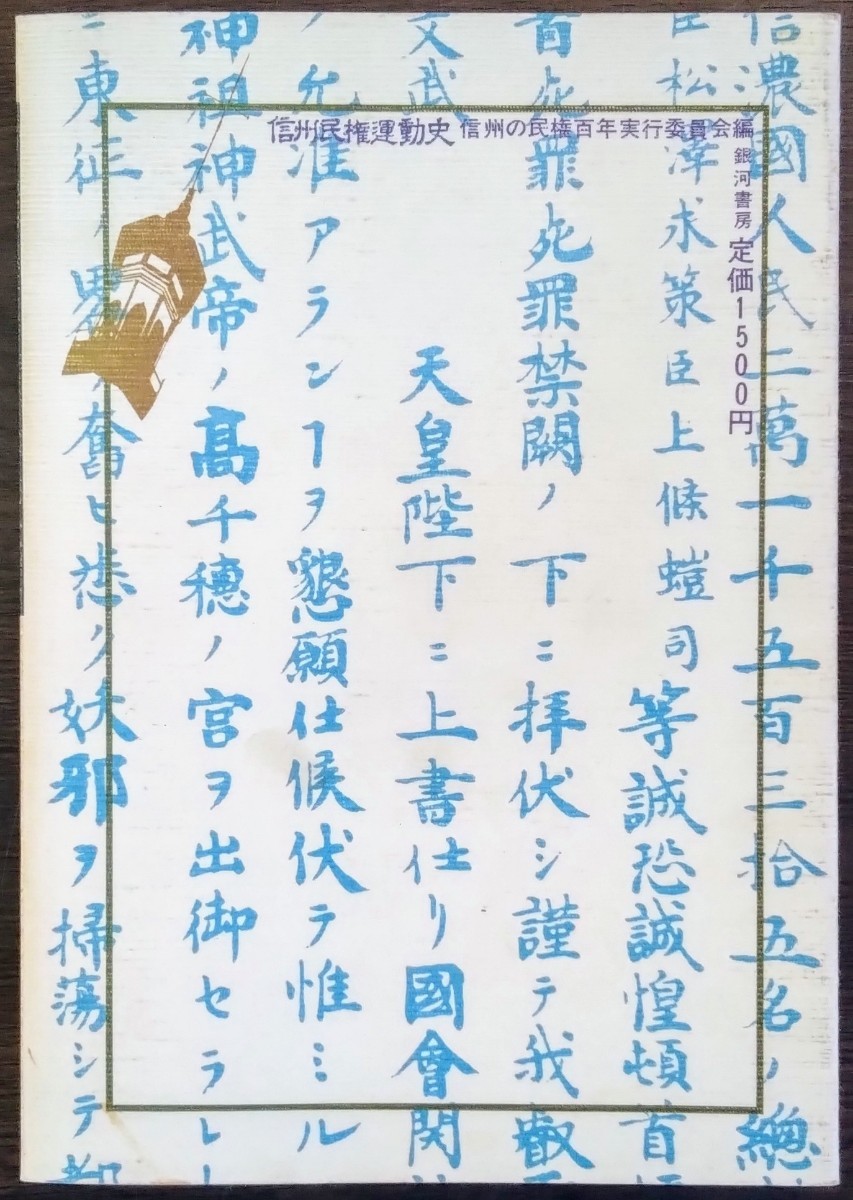 信州民権運動史 信州の民権百年実行委員会編
銀河書房 定価1500円
信濃國人民二萬一千五百三拾五名ノ總
臣松澤求策臣上條螘司等誠恐誠惶頓首
首死罪死罪禁闕ノ下ニ拝伏シ謹テ我叡
文武
天皇陛下ニ上書仕リ國會開
ノ允准アランヿヲ懇願仕候伏テ惟ミル
神祖神武帝ノ高千穂ノ宮ヲ出御セラレ
ニ東征ノ畧ヲ奮ヒ悉ク妖邪ヲ掃蕩シテ都